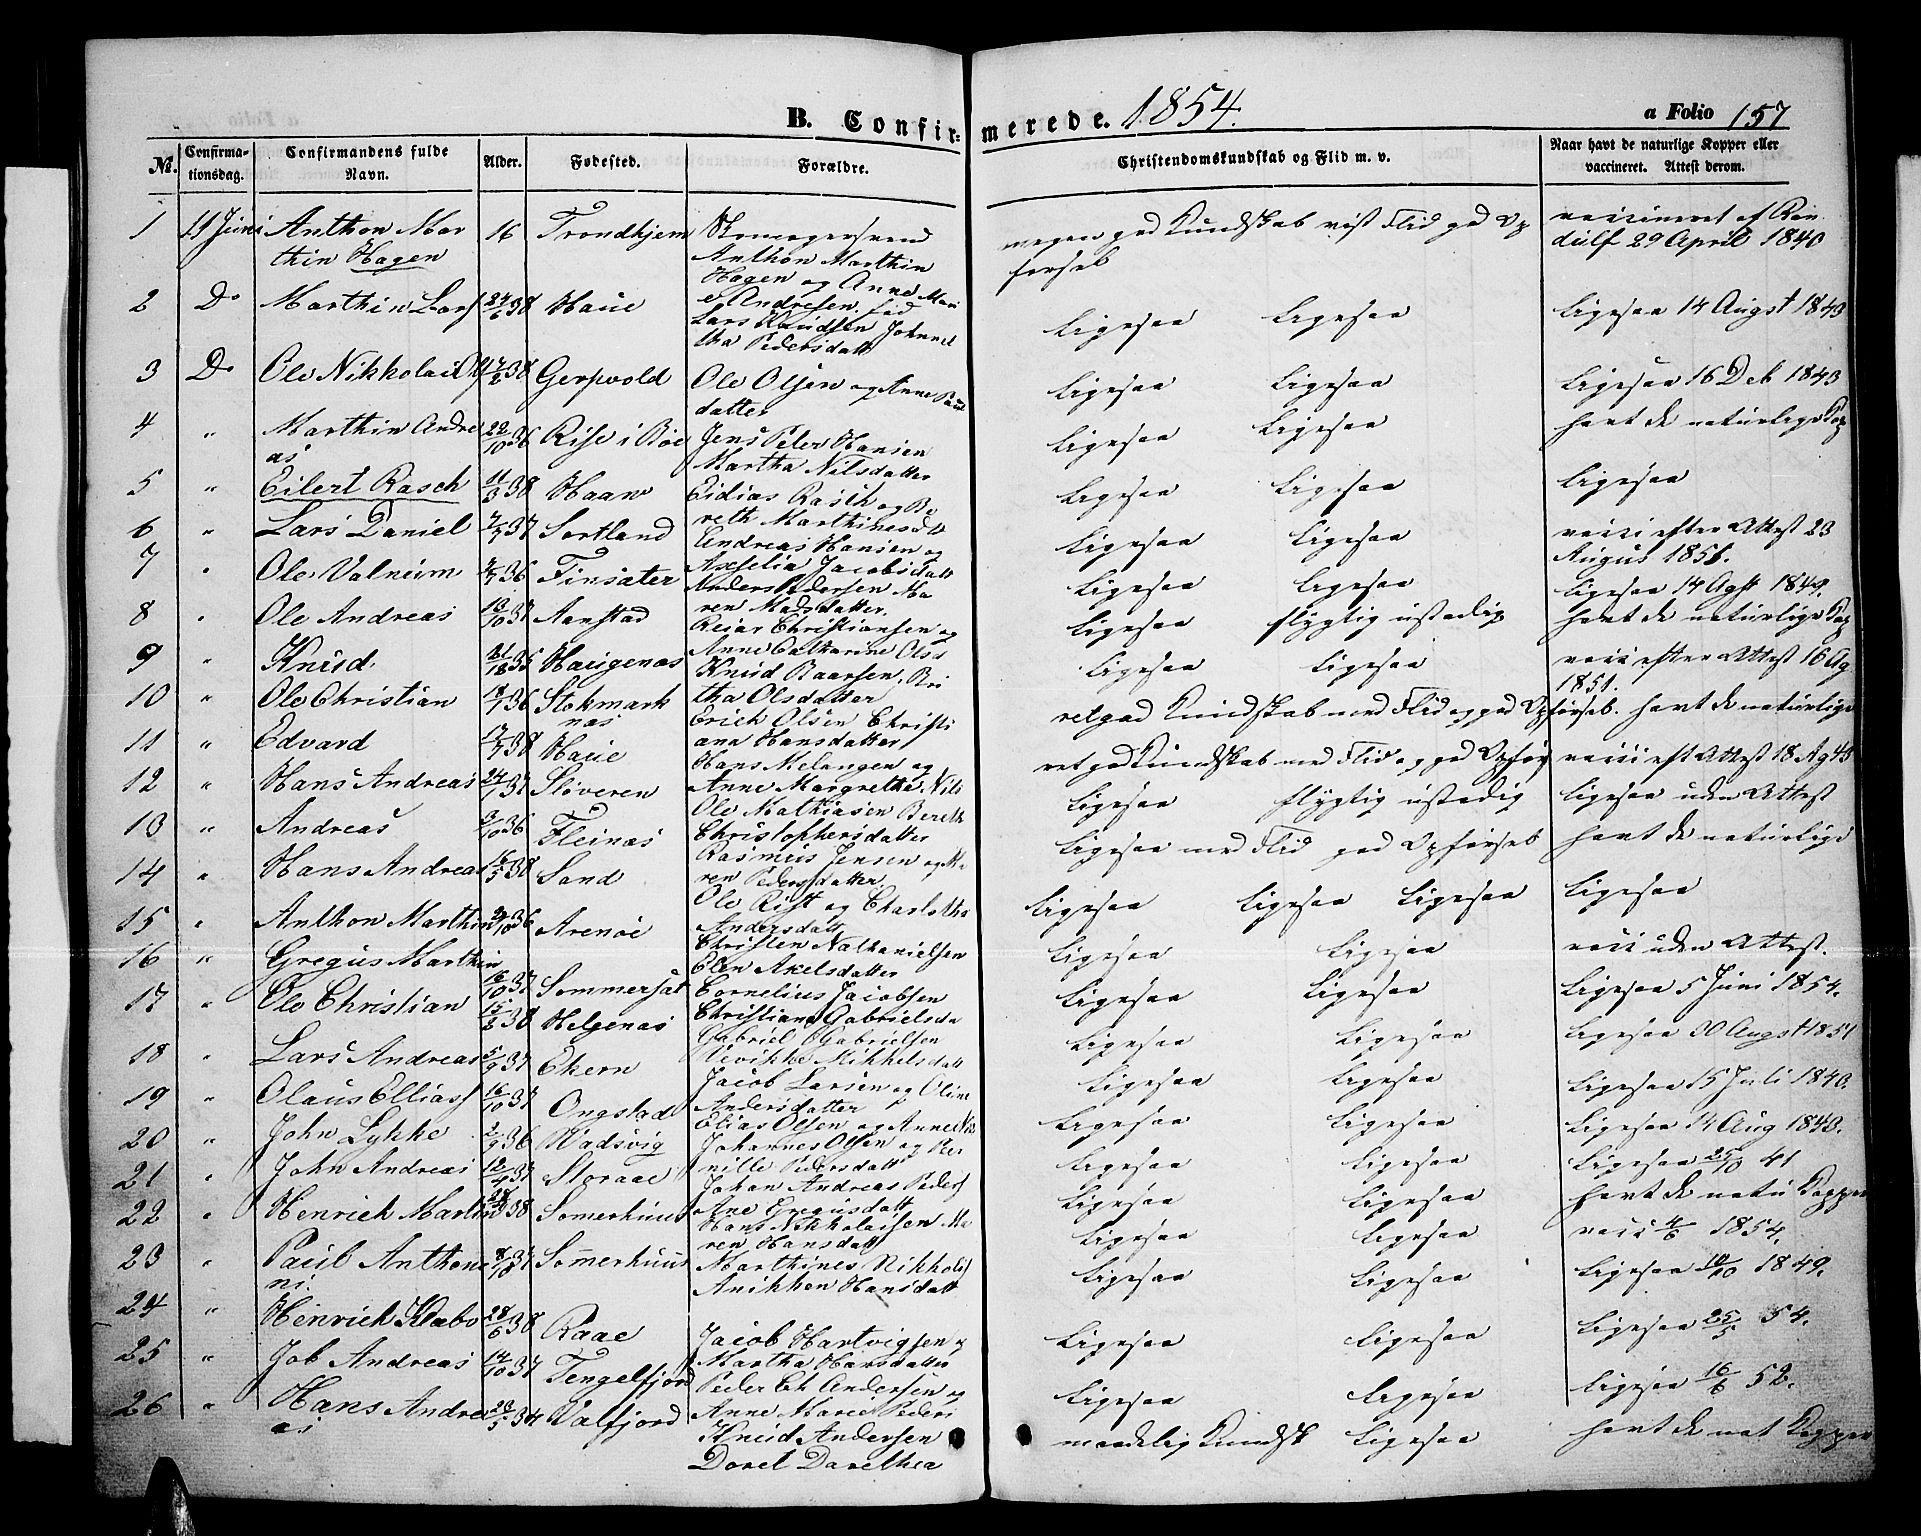 B. Confirmerede. 1854. a Folio 157
No. Confirmationsdag. Confirmandens fulde Navn. Alder. Fødested. Forældre. Christendomskundskab og Flid m. v. Naar havt de naturlige Kopper eller vaccineret. Attest derom.
1 11 Juni Anthon Marthin Hagen 16 Trondhjem Anthon Marthin Hagen og Anne Marie Andresen megen god Kundskab 29 April 1840
2 Do Marthin Lars 38 Haue Lars Knudsen Johnnetha Pedersdatt Ligesaa Ligesaa Ligesaa 14 Augst 1843
3 Do Ole Nikkolai 38 Ole Olsen og Anne Paul datter Ligesaa Ligesaa Ligesaa 16 Deb 1843
4 " Marthin Andreas 22/10 36 Rise i Bøe Jens Peter Hansen Martha Nilsdatter Ligesaa Ligesaa havt de naturlige Kop
5 " Eilert Rasch 11/3 38 Haan Eidias Rasch og Bereth Marthinesdtt Ligesaa Ligesaa Ligesaa
6 " Lars Daniel 37 Sortland Andreas Hansen og Axselia Jacobsdatt Ligesaa Ligesaa vacci efter Attest 23 Augus 1851.
7 " Ole Valneum 36 Finsæter Anders Pedersen Maren Madsdatter. Ligesaa Ligesaa Ligesaa 14 Agst
8 " Ole Andreas 37 Aanstad Reiar Christiansen og Anne Catharine Olss Ligesaa flygtig ustadig havt de naturlige Kop
9 " Knud. 35 Haugenæs Knud Baarsen, Britha Olsdatter Ligesaa Ligesaa vacci efter Attest 16 Ag 1851.
10 " Ole Christian 36 Stokmarknæs Erich Olsen Christiana Hansdatter retgod Kundskab med Flid og god Opførsel. havt de naturlige
11 " Edvard 38 Haue Hans Melangen og Anne Margretha Nils retgod Kundskab med Flid og god Opfør vacci eft Attest 18 Ag 43
12 " Hans Andreas 37 Sløveren Ole Mathiasen Bereth Christophersdatter Ligesaa flygtig ustadig Ligesaa uden Attest
13 " Andreas 36 Fleinæs Rasmus Jensen og Maren Pedersdatter. Ligesaa med Flid god Opførsel havt de naturlige
14 " Hans Andreas 38 Sand Ole Rist og Charlotha Andersdatt Ligesaa Ligesaa Ligesaa Ligesaa
15 " Anthon Marthin 36 Arenøe Christen Nathanielsen Elen Axelsdatter Ligesaa Ligesaa vacci uden Attest.
16 " Gregus Marthin 16/10 37 Sommersæt Cornelius Jacobsen Christiane Gabrielsda Ligesaa Ligesaa Ligesaa 5 Juni 1854.
17 " Ole Christian 38 Helgenæs Gabriel Gabrielsen Mikkelsdatt Ligesaa Ligesaa Ligesaa 30 Augst 1851
18 " Lars Andreas 5/9 37 Ekern Jacob Larsen og Oline Andersdatter Ligesaa Ligesaa Ligesaa 15 Juli 1840.
19 " Olaus Ellias 16/10 37 Ongstad Elias Olsen og Anne Nils Ligesaa Ligesaa Ligesaa 14 Aug 1843.
20 " John Lykke 2/9 36 Hadsvig Johannes Olsen og Pernille Pedersdatt Ligesaa Ligesaa Ligesaa 25/10 41
21 " John Andreas 12/4 37 Storaae Johan Andreas Peders Ane Gregusdatt Ligesaa Ligesaa havt de natu Kopper
22 " Henrich Martin 38 Somerhuus Hans Nikkolaisen Maren Hansdatt Ligesaa Ligesaa vacci 4/6 1854.
23 " Paul Anthoni 8/10 37 Somerhuus Marthines Nikkolas Anikken Hansdatt Ligesaa Ligesaa Ligesaa 1849.
24 " Henrich Klæbo 28/6 38 Raae Jacob Hartvigsen og Martha Hansdatter Ligesaa Ligesaa Ligesaa 25/5 54.
25 " Job Andreas 14/10 37 Tengelfjord Peder Ch Andersen og Anne Marie Peders Ligesaa Ligesaa Ligesaa 16/6 52.
26 " Hans Andreas 34 Valfjord Knud Andersen Doret Darethea maadelig Kundsk Ligesaa havt de nat Kopper